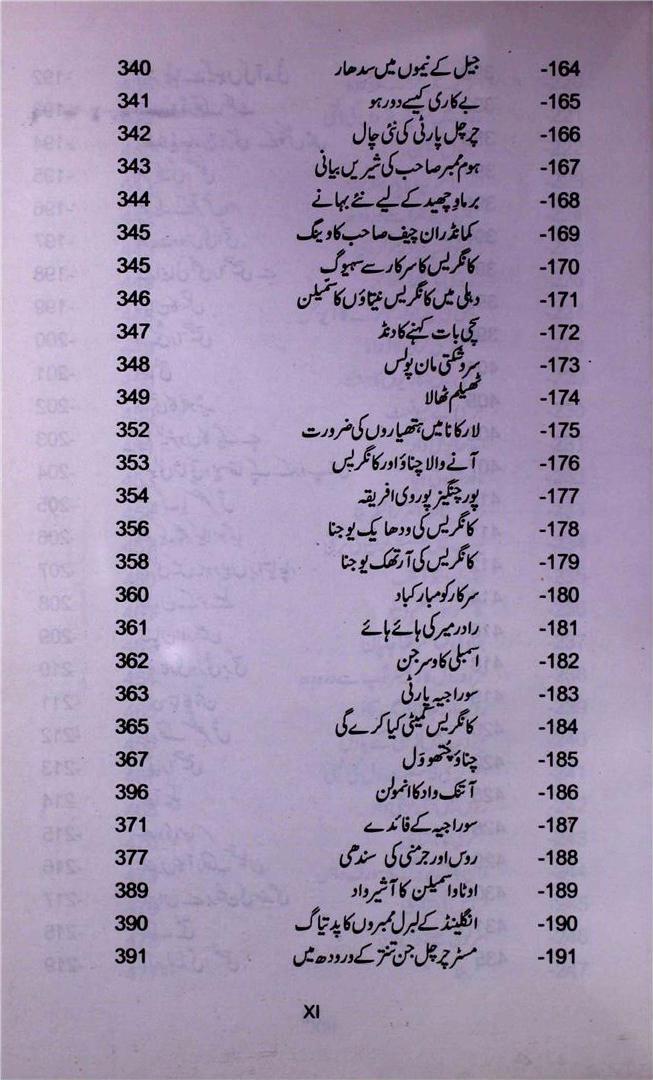 164- جیل کے نیموں میں سدھار 340
165- بے کاری کیسے دور ہو 341
166- چرچل پارٹی کی نئی چال 342
167- ہوم ممبر صاحب کی شیریں بیانی 343
168- برما وچھید کے لیے نئے بہانے 344
169- کمانڈر ان چیف صاحب کا وینگ 345
170- کانگریس کا سرکار سے سہیوگ 345
171- دہلی میں کانگریس نیتاؤں کا سمیلن 346
172- سچی بات کہنے کا دنڈ 347
173- سروشکتی مان پولس 348
174- ٹھیلم ٹھالا 349
175- لارکانا میں ہتھیاروں کی ضرورت 352
176- آنے والا چناؤ اور کانگریس 353
177- پور چنگیز پوروی افریقہ 354
178- کانگریس کی ودھایک یوجنا 356
179- کانگریس کی آرتھک یوجنا 358
180- سرکار کو مبارکباد 360
181- رادرمیر کی ہائے ہائے 361
182- اسمبلی کا وسرجن 362
183- سوراجیہ پارٹی 363
184- کانگریس کمیٹی کیا کرے گی 365
185- چناؤ چتھوڈل 367
186- آتنک واد کا انمولن 396
187- سوراجیہ کے فائدے 371
188- روس اور جرمنی کی سندھی 377
189- اوٹاوا سمیلن کا آشیرواد 389
190- انگلینڈ کے لبرل ممبروں کا پدتیاگ 390
191- مسٹر چرچل جن تنتر کے ورودھ میں 391
XI